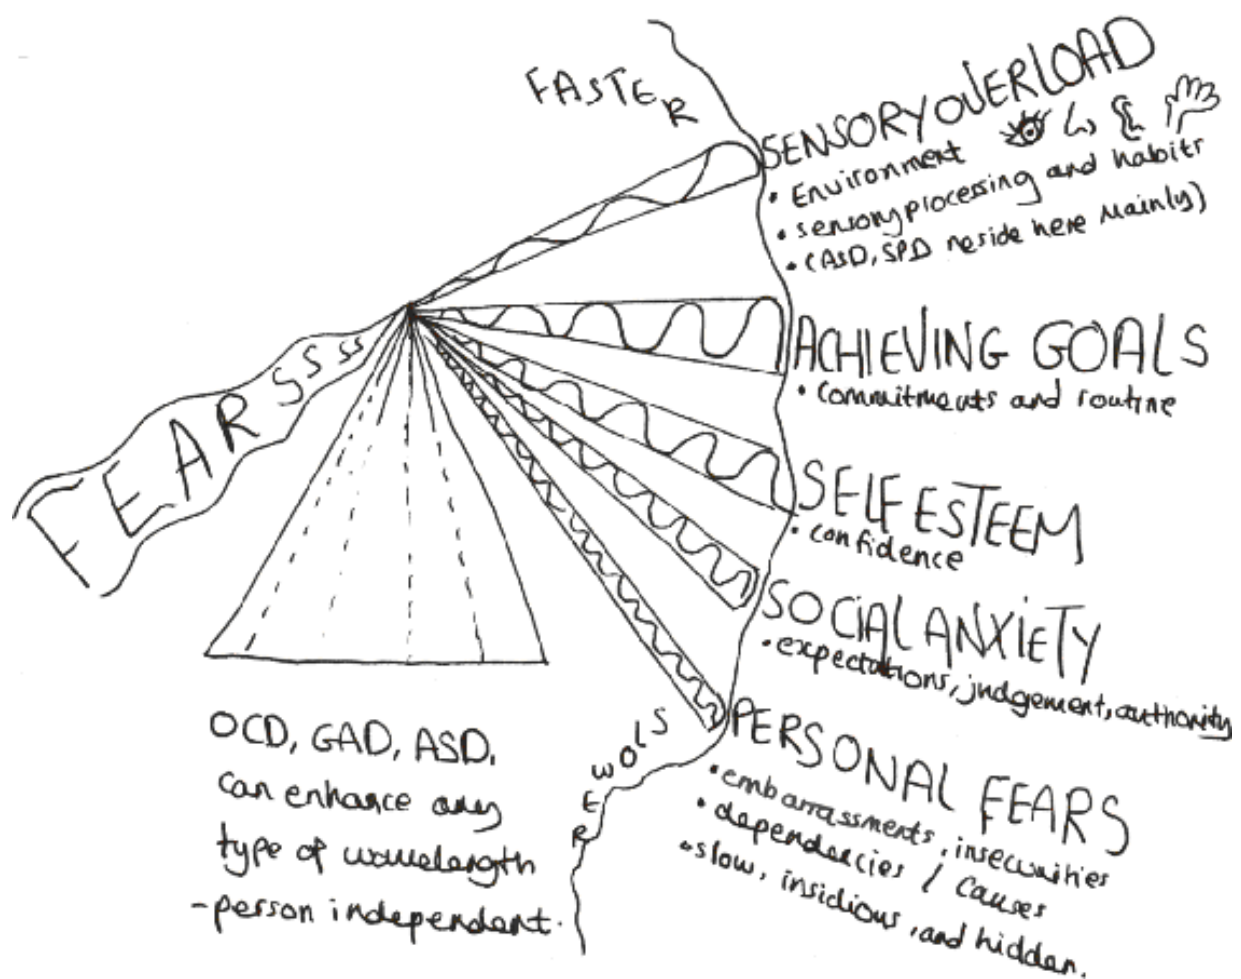 FASTER
SENSORY OVERLOAD
• Environment
• sensory processing and habits
• (ASD, SPD reside here mainly)
ACHIEVING GOALS
• commitments and routine
SELF ESTEEM
• confidence
SOCIAL ANXIETY
• expectations, judgement, authority
PERSONAL FEARS
• embarrassments, insecurities
• dependencies / causes
• slow, insidious, and hidden.
SLOWER
FEARSSSSS
OCD, GAD, ASD.
can enhance any
type of wavelength
-person independent.